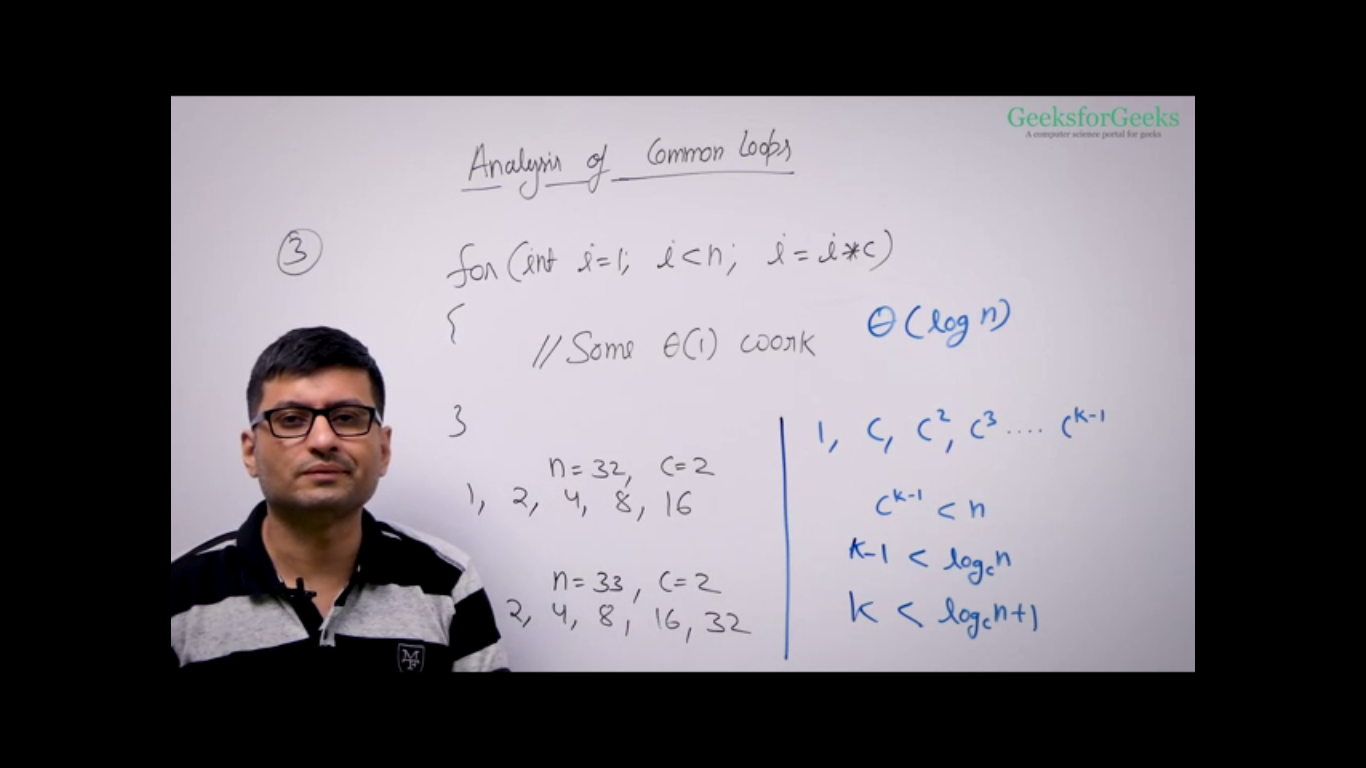 GeeksforGeeks
A computer science portal for geeks
Analysis of Common Loops
3
for (int i=1; i<n; i=i*c)
{
// Some θ(1) work
θ(log n)
}
n=32, c=2
1, 2, 4, 8, 16
n=33, c=2
2, 4, 8, 16, 32
1, c, c², c³ .... c^k-1
c^k-1 < n
k-1 < log_c n
k < log_c n+1